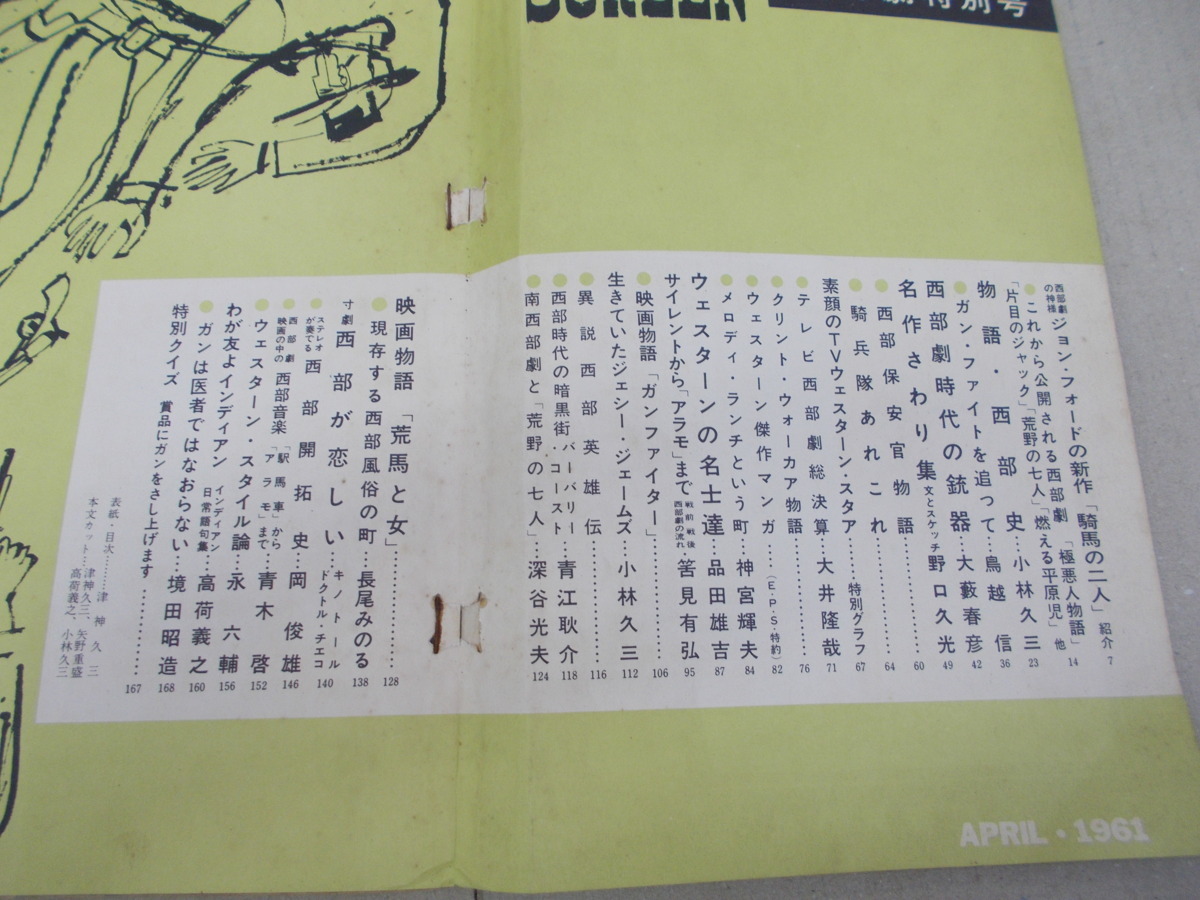 SCREEN
特別号
西部劇の神様 ジョン・フォードの新作「騎馬の二人」紹介 7
これから公開される西部劇「極悪人物語」「片目のジャック」「荒野の七人」「燃える平原児」他 14
物語・西部史‥小林久三 23
ガン・ファイトを追って‥鳥越信 36
西部劇時代の銃器‥大藪春彦 42
名作さわり集 文とスケッチ 野口久光 49
西部保安官物語‥‥‥ 60
騎兵隊あれこれ‥‥‥ 64
素顔のTVウェスターン・スタア‥特別グラフ 67
テレビ西部劇総決算‥大井隆哉 71
クリント・ウォーカア物語‥‥‥ 76
ウェスターン傑作マンガ‥(E・P・S・特約) 82
メロディ・ランチという町‥神宮輝夫 84
ウェスターンの名士達‥品田雄吉 87
サイレントから「アラモ」まで 戦前戦後西部劇の流れ‥筈見有弘 95
映画物語「ガンファイター」‥‥‥ 106
生きていたジェシー・ジェームズ‥小林久三 112
異説西部英雄伝‥‥‥ 116
西部時代の暗黒街・バーバリー・コースト‥青江耿介 118
南西部劇と「荒野の七人」‥深谷光夫 124
映画物語「荒馬と女」‥‥‥ 128
現存する西部風俗の町‥長尾みのる 138
寸劇 西部が恋しい‥キノトール ドクトル・チエコ 140
ステレオが奏でる 西部開拓史‥岡俊雄 146
西部劇映画の中の 西部音楽「駅馬車」から「アラモ」まで‥青木啓 152
ウェスターン・スタイル論‥永六輔 156
わが友よインディアン インディアン日常語句集‥高荷義之 160
ガンは医者ではなおらない‥境田昭造 168
特別クイズ 賞品にガンをさし上げます‥‥‥ 167
表紙・目次‥‥‥津神久三
本文カット‥津神久三、矢野重盛
高荷義之、小林久三
APRIL・1961